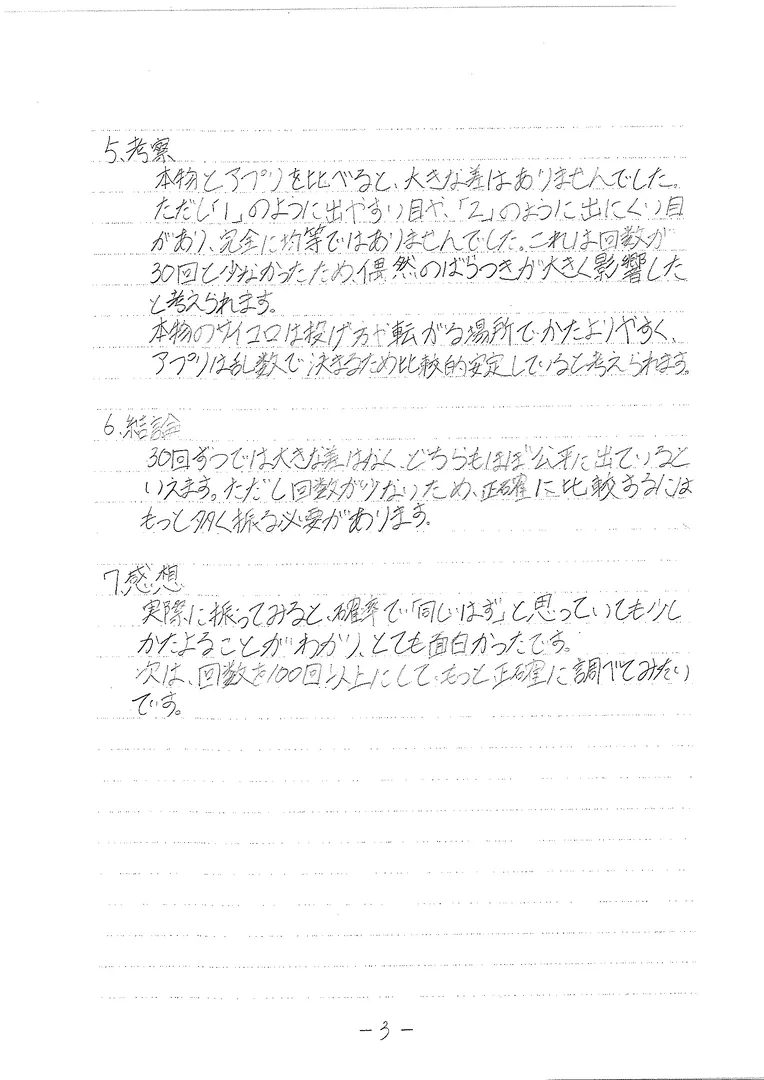 5、考察
本物とアプリを比べると、大きな差はありませんでした。
ただし「1」のように出やすい目や、「2」のように出にくい目
があり、完全に均等ではありませんでした。これは回数が
30回と少なかったため、偶然のばらつきが大きく影響した
と考えられます。
本物のサイコロは投げ方や転がる場所でかたよりやすく、
アプリは乱数で決まるため比較的安定していると考えられます。
6、結論
30回ずつでは大きな差はなく、どちらもほぼ公平に出ていると
いえます。ただし回数が少ないため、正確に比較するには
もっと多く振る必要があります。
7、感想
実際に振ってみると、確率で「同じはず」と思っていても少し
かたよることがわかり、とても面白かったです。
次は、回数を100回以上にして、もっと正確に調べてみたい
です。
-3-